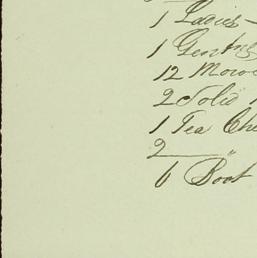 1 Ladies -
1 Gents
12 Moroc
2 Solid
1 Tea Che
2 — "
6 Boot